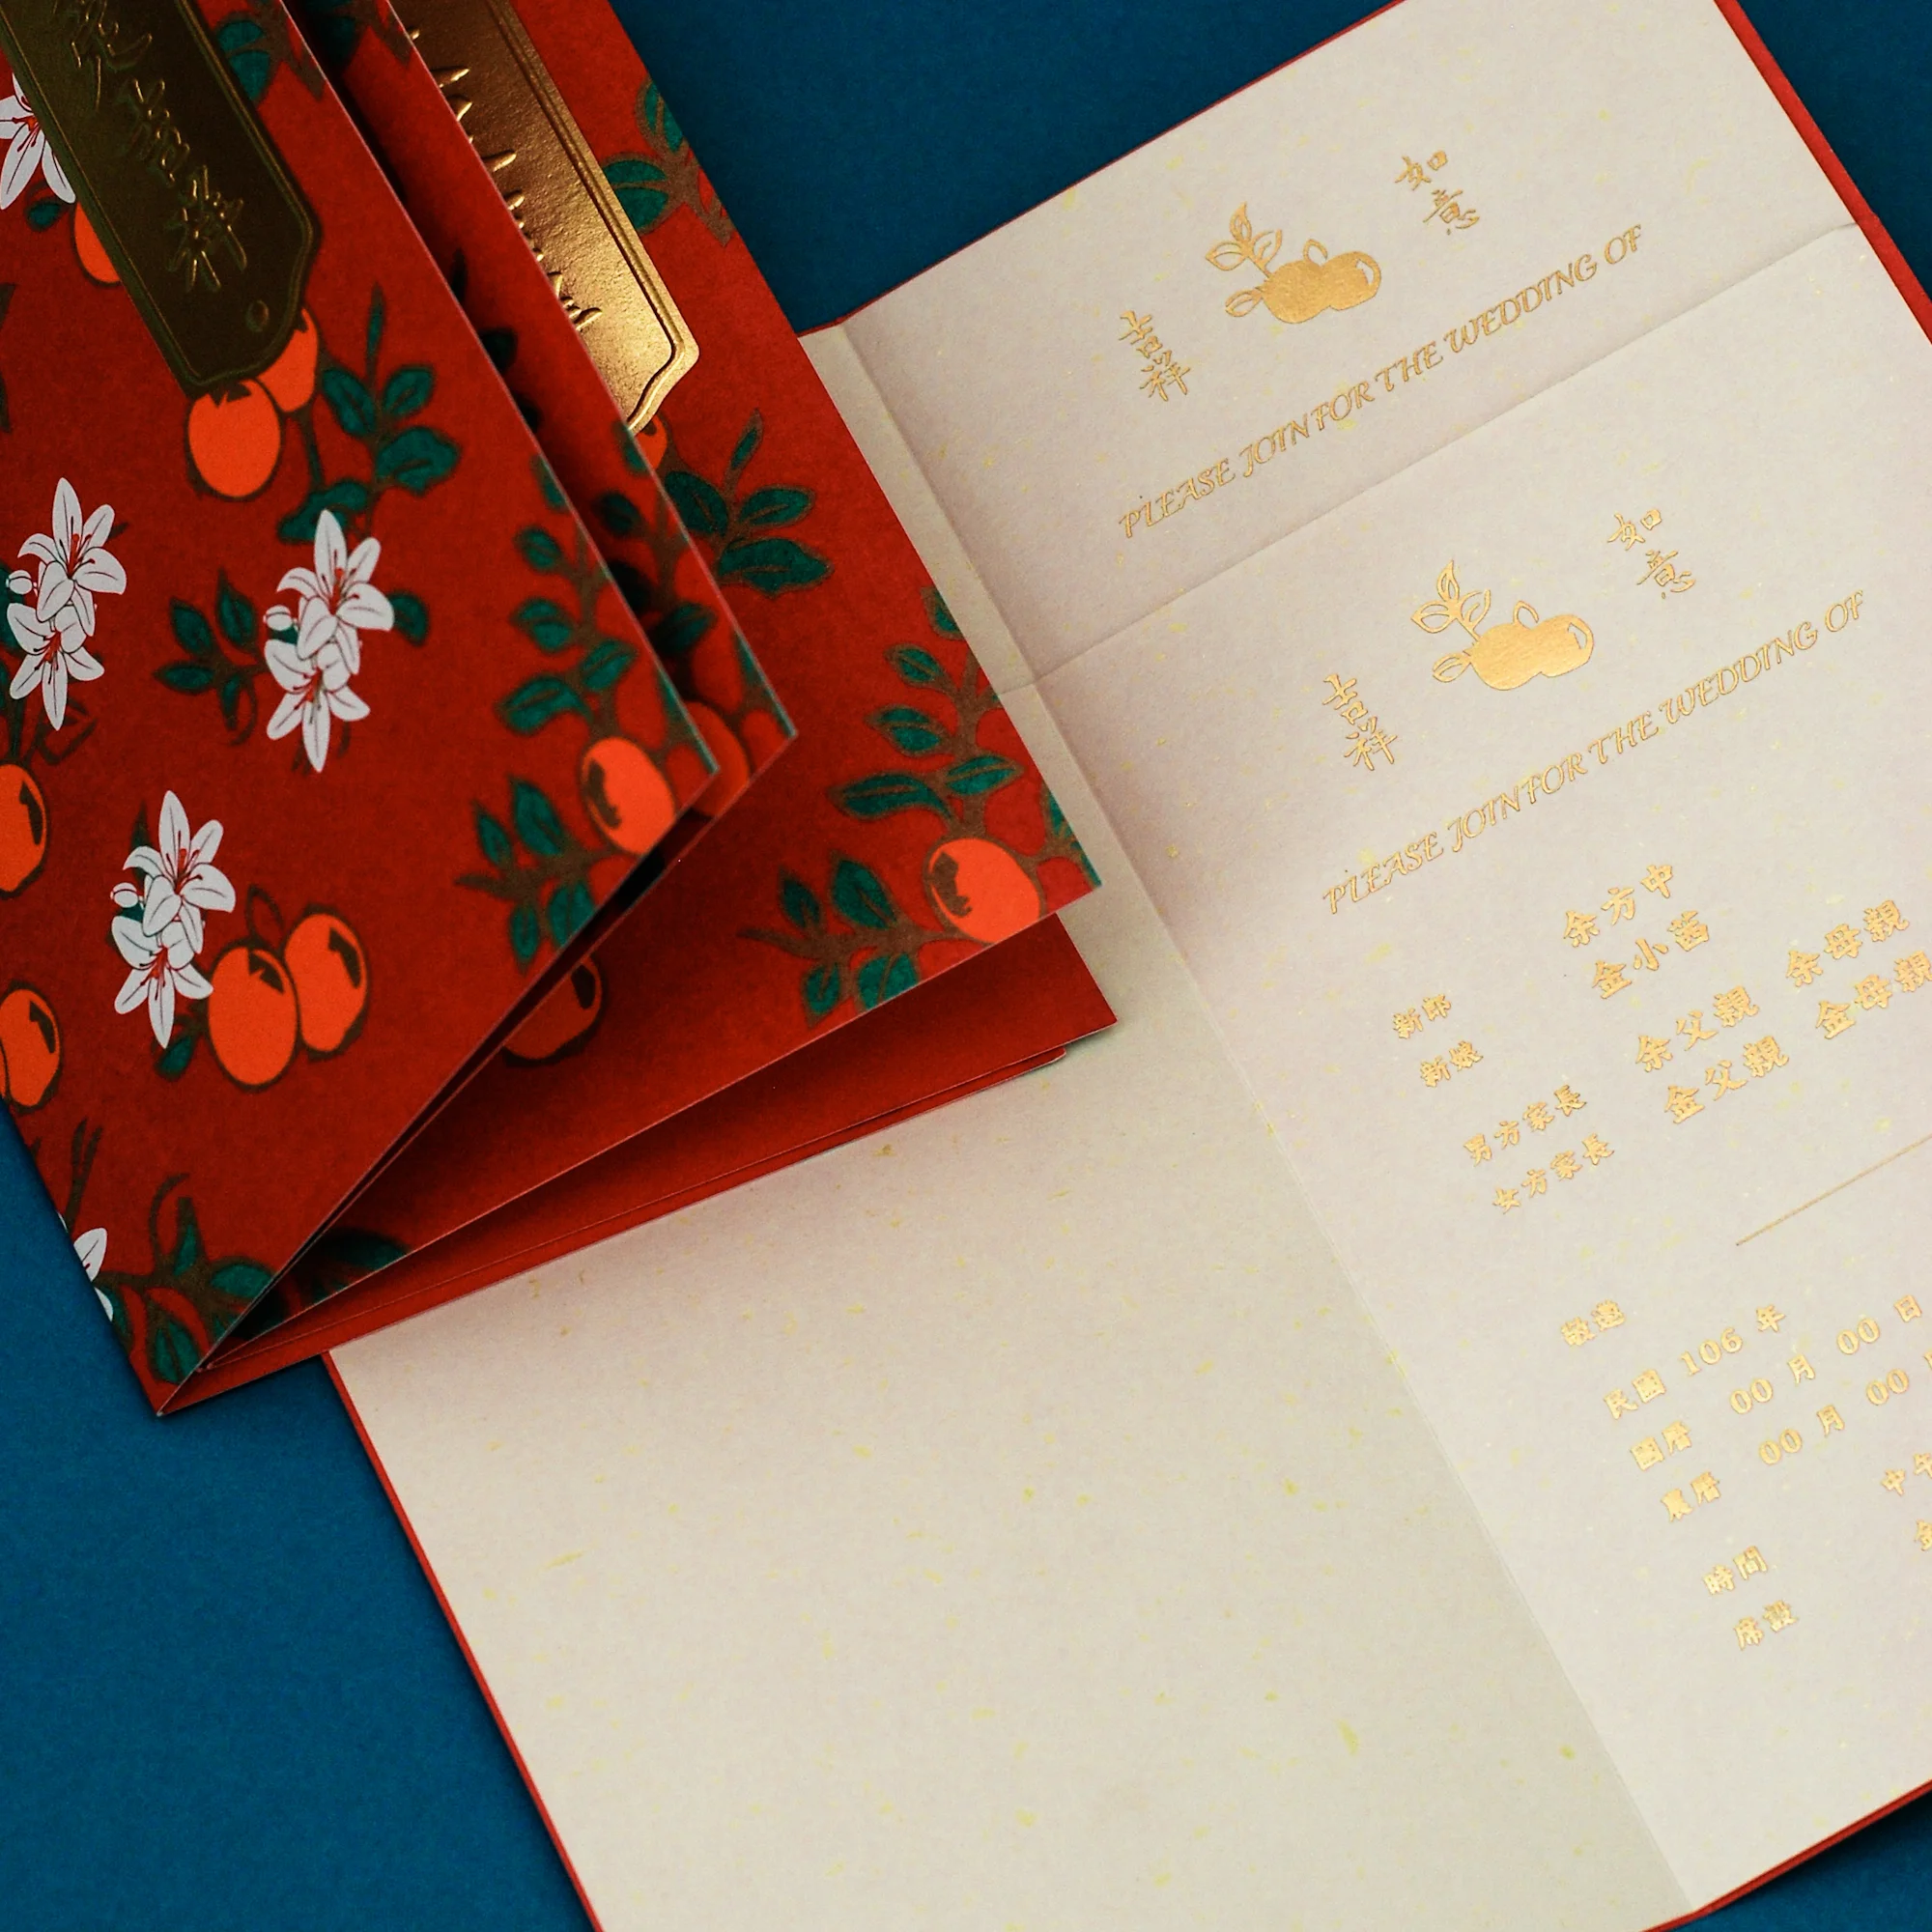 吉祥
如意
PLEASE JOIN FOR THE WEDDING OF
吉祥
如意
PLEASE JOIN FOR THE WEDDING OF
新郎 余方中
新娘 金小茜
男方家長 余父親 余母親
女方家長 金父親 金母親
敬邀
民國 106 年
國曆 00 月 00 日
農曆 00 月 00
時間 中午
席設